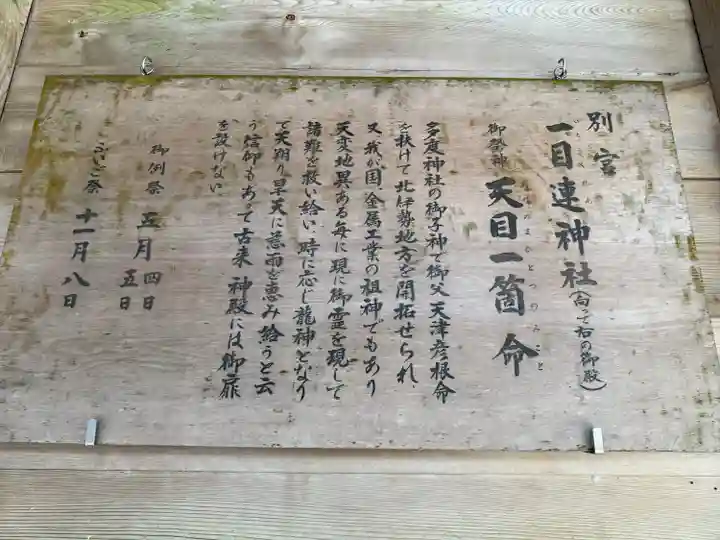 別宮
一目連神社(向って右の御殿)
いちもくれん
御祭神 天目一箇命
あめのまひとつのみこと
多度神社の御子神で御父 天津彦根命
を扶けて北伊勢地方を開拓せられ
又我が国、金属工業の祖神でもあり
天変地異ある毎に現に御霊を現して
諸難を救い給い、時に応じ龍神となり
て天翔り旱天に慈雨を恵み給うと云
う信仰もあって古来 神殿には御扉
を設けない
御例祭 五月 四日 五日
ふいご祭 十一月八日